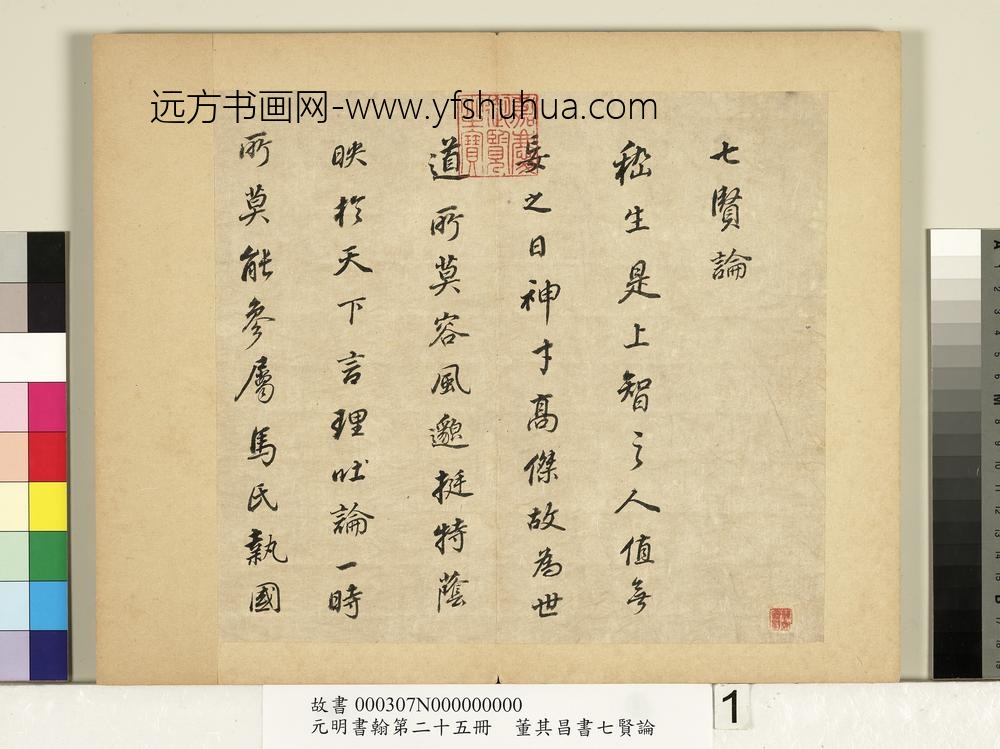 远方书画网-www.yfshuhua.com
七賢論
嵇生是上智之人值無
妄之日神才高傑故為世
道所莫容風邈挺特蔭
映於天下言理吐論一時
所莫能參屬馬氏執國
故書 000307N000000000
元明書翰第二十五冊 董其昌書七賢論
1